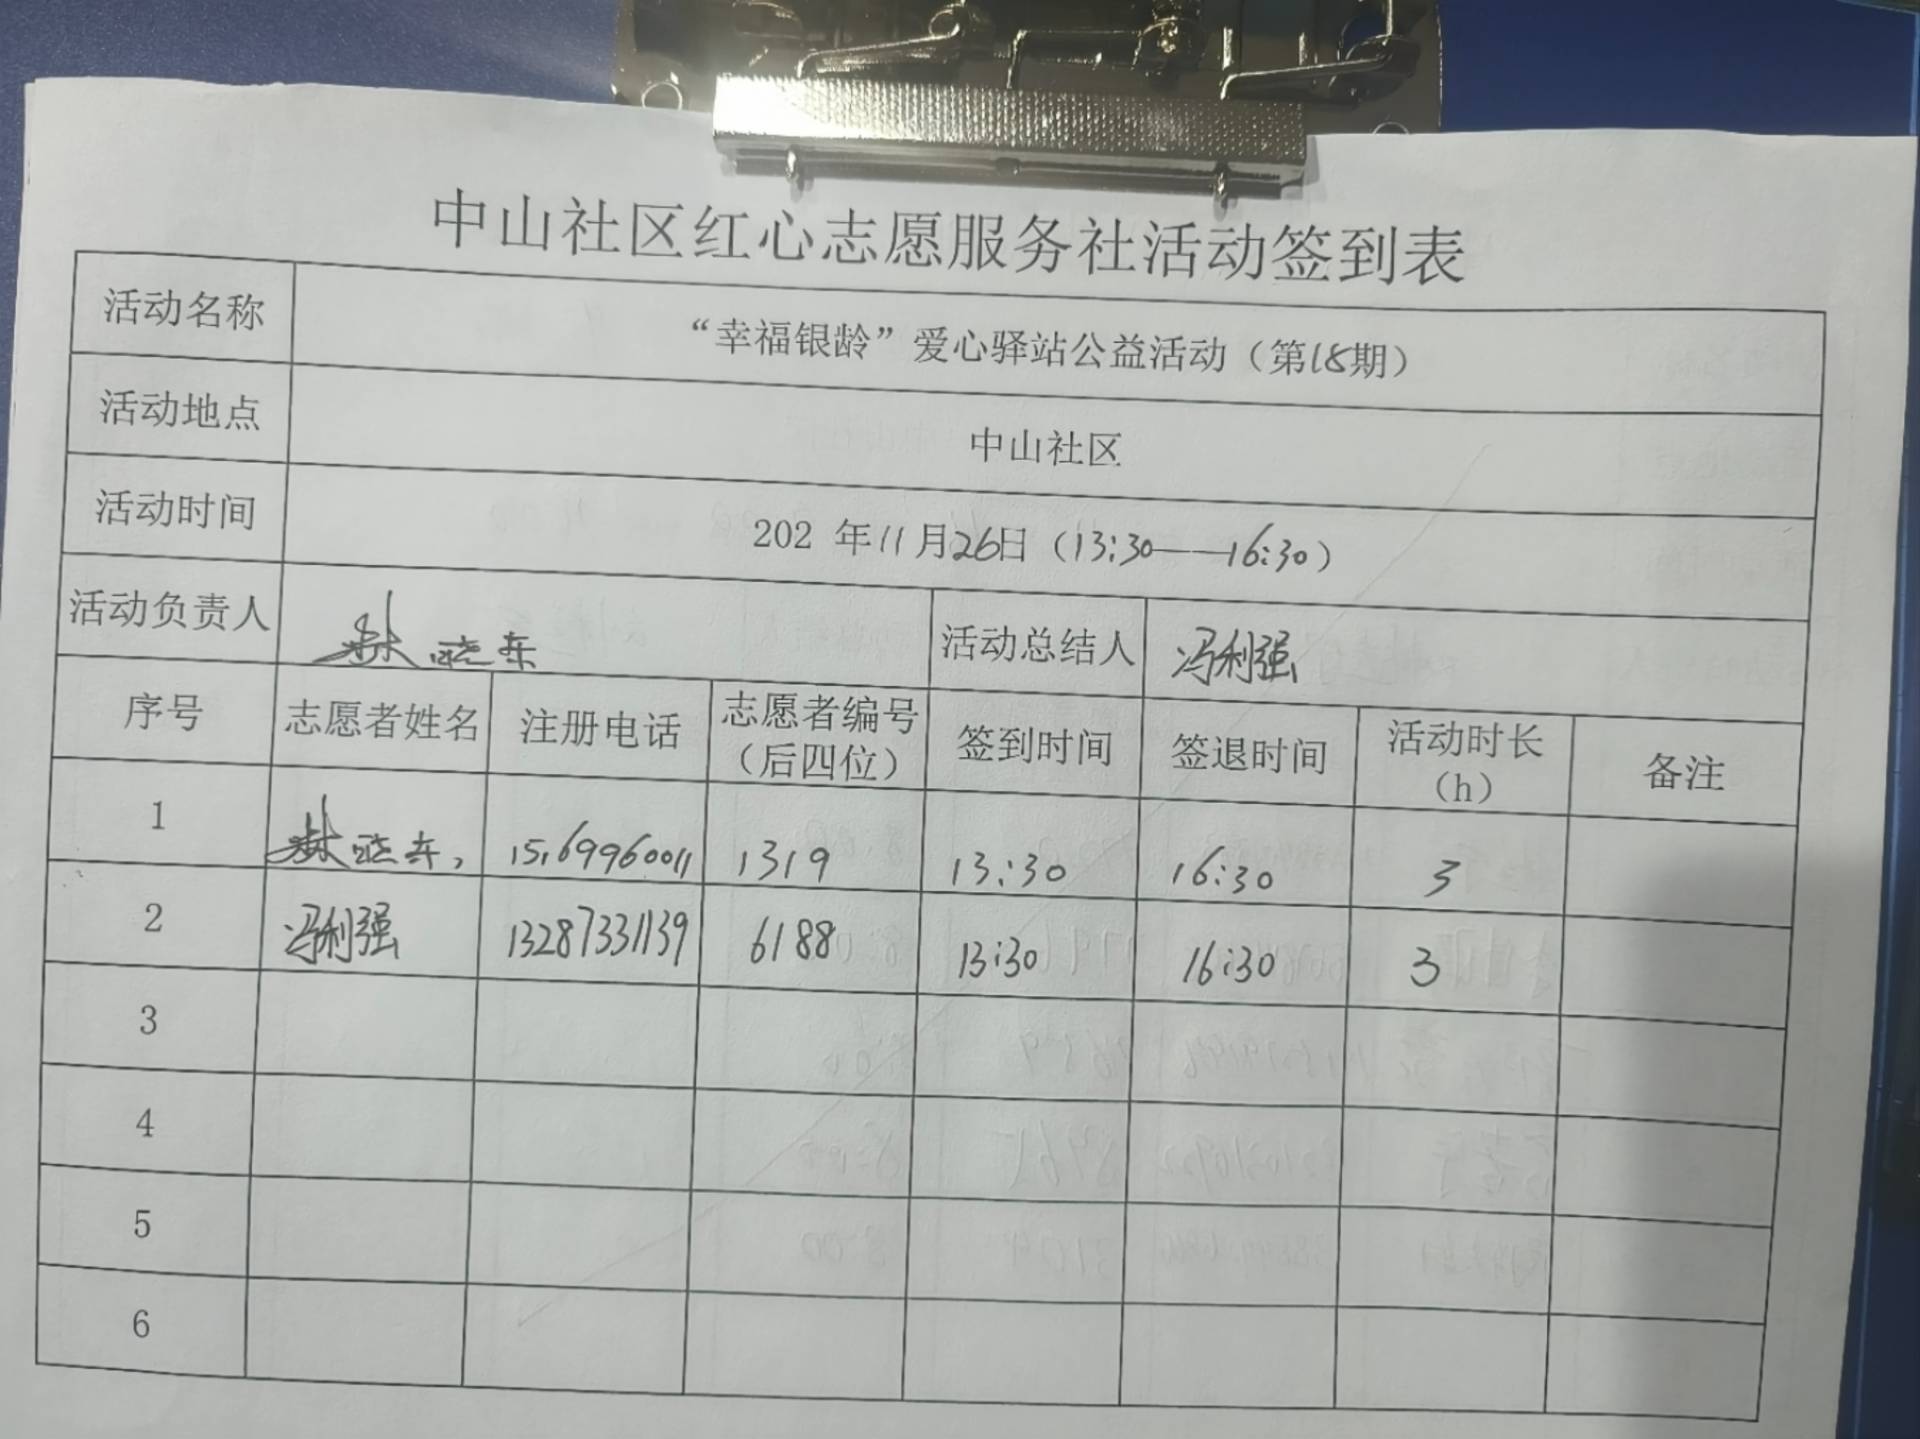 中山社区红心志愿服务社活动签到表
活动名称 “幸福银龄”爱心驿站公益活动（第18期）
活动地点 中山社区
活动时间 202 年11月26日（13:30——16:30）
活动负责人 林晓东 活动总结人 冯利强
序号 志愿者姓名 注册电话 志愿者编号（后四位） 签到时间 签退时间 活动时长（h） 备注
1 林晓东 15169960011 1319 13:30 16:30 3
2 冯利强 13287331139 6188 13:30 16:30 3
3
4
5
6